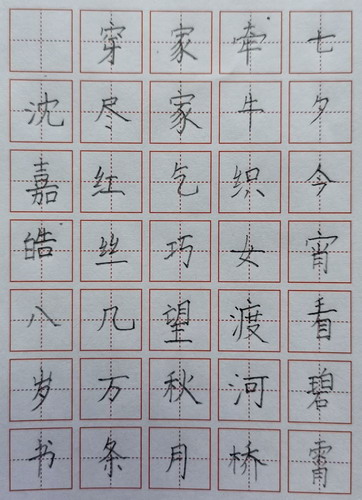 七夕今宵看碧霄
牵牛织女渡河桥
家家乞巧望秋月
穿尽红丝几万条
沈嘉皓八岁书